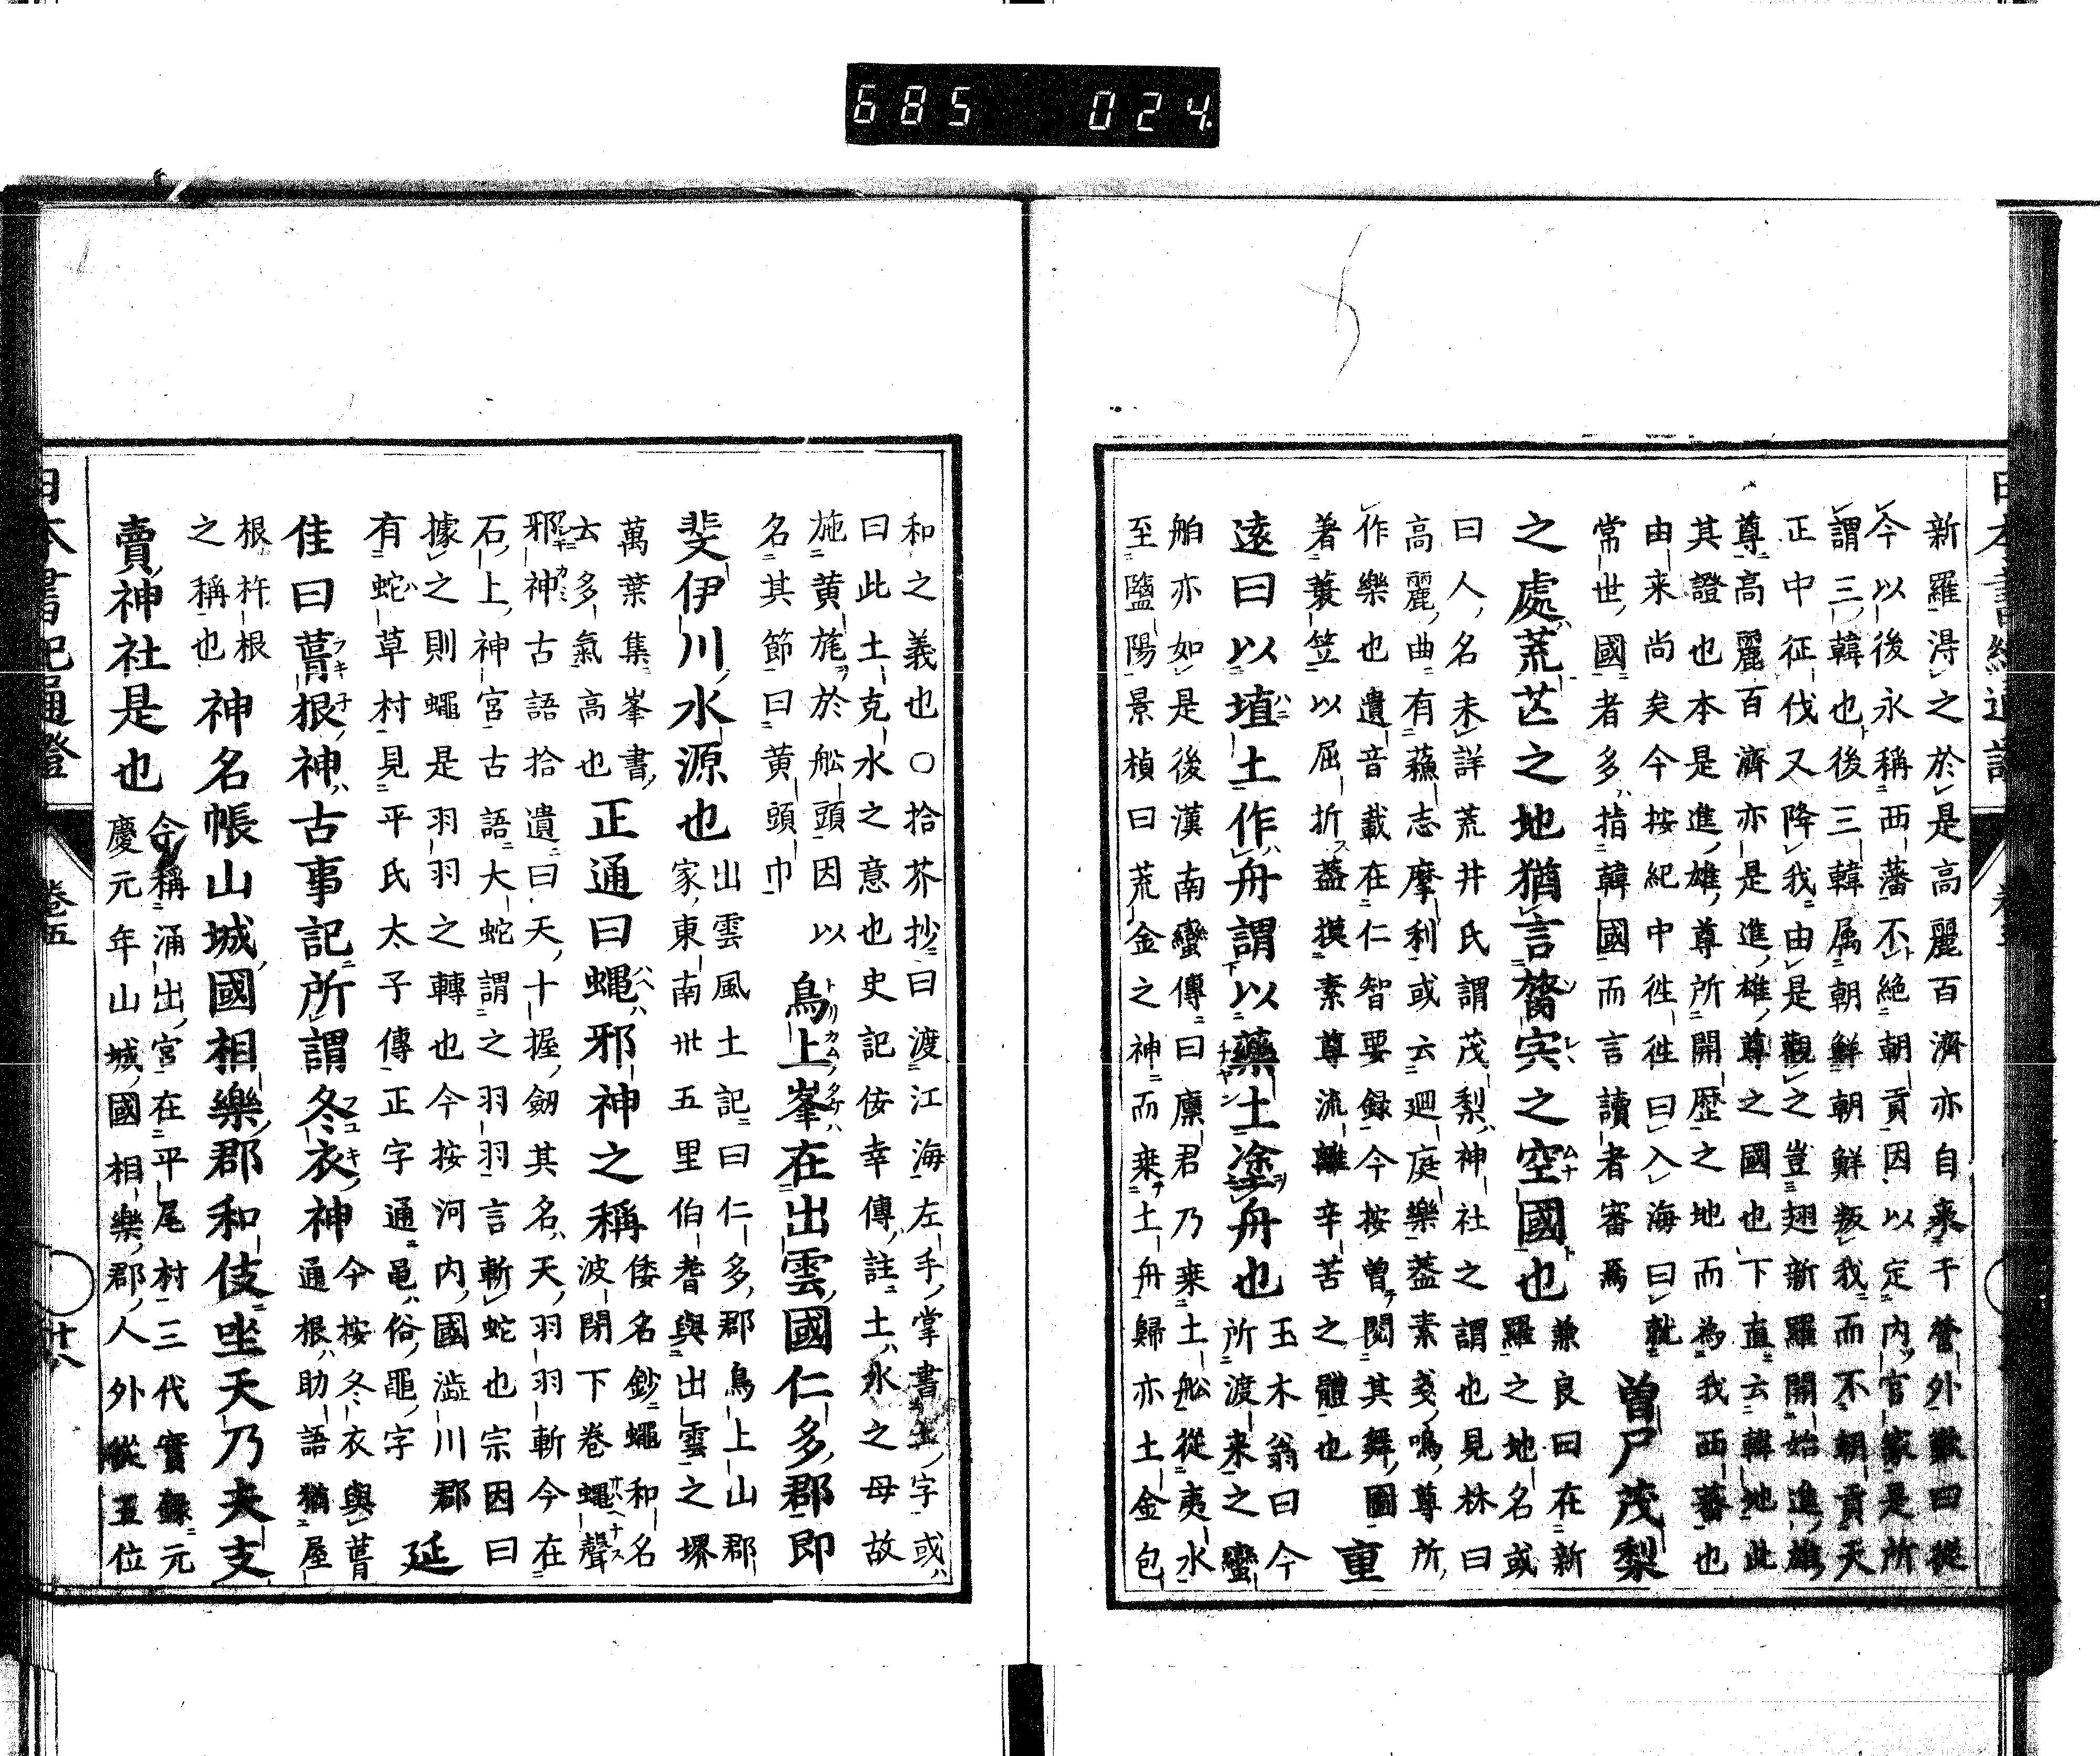 685 024.
新羅淂之於是高麗百濟亦自來于營外歎曰從
今以後永稱西蕃不絶朝貢因以定内官家是所
謂三韓也後三韓属朝鮮朝鮮叛我而不朝貢天
正中征伐又降我由是觀之豈翅新羅開始進雄
尊高麗百濟亦是進雄尊之國也下直云韓地此
其證也本是進雄尊所開歷之地而為我西蕃也
由来尚矣今按紀中徃徃曰入海曰就
常世國者多指韓國而言讀者審焉
曽尸茂梨
之處荒芒之地猶言膂宍之空國也
兼良曰在新
羅之地名或
曰人名未詳荒井氏謂茂梨神社之謂也見林曰
高麗曲有蘓志摩利或云廻庭樂葢素戔嗚尊所
作樂也遺音載在仁智要録今按曽閲其舞圖
著蓑笠以屈折葢摸素尊流離辛苦之體也
重
遠曰以埴土作舟謂以藥土塗舟也
玉木翁曰今
所渡来之蠻
舶亦如是後漢南蠻傳曰廩君乃乗土舩從夷水
至鹽陽景楨曰荒金之神而乗土舟歸亦土金包
和之義也○拾芥抄曰渡江海左手掌書土字或
曰此土克水之意也史記佞幸傳註土水之母故
施黄旄於舩頭因以
名其節曰黄頭巾
鳥上峯在出雲國仁多郡即
斐伊川水源也
出雲風土記曰仁多郡鳥上山郡
家東南卅五里伯耆與出雲之堺
萬葉集峯書
去多氣高也
正通曰蝿邪神之稱
倭名鈔蠅和名
波閉下巻蠅聲
邪神古語拾遺曰天十握劒其名天羽羽斬今在
石上神宮古語大蛇謂之羽羽言斬蛇也宗因曰
據之則蠅是羽羽之轉也今按河内國澁川郡
有蛇草村見平氏太子傳正字通黽俗黽字
延
佳曰葍根神古事記所謂冬衣神
今按冬衣與葍
通根助語猶屋
根杵根
之稱也
神名帳山城國相樂郡和伎坐天乃夫支
賣神社是也
今稱涌出宮在平尾村三代實録元
慶元年山城國相樂郡人外從五位
日本書紀通證
卷五
廿八